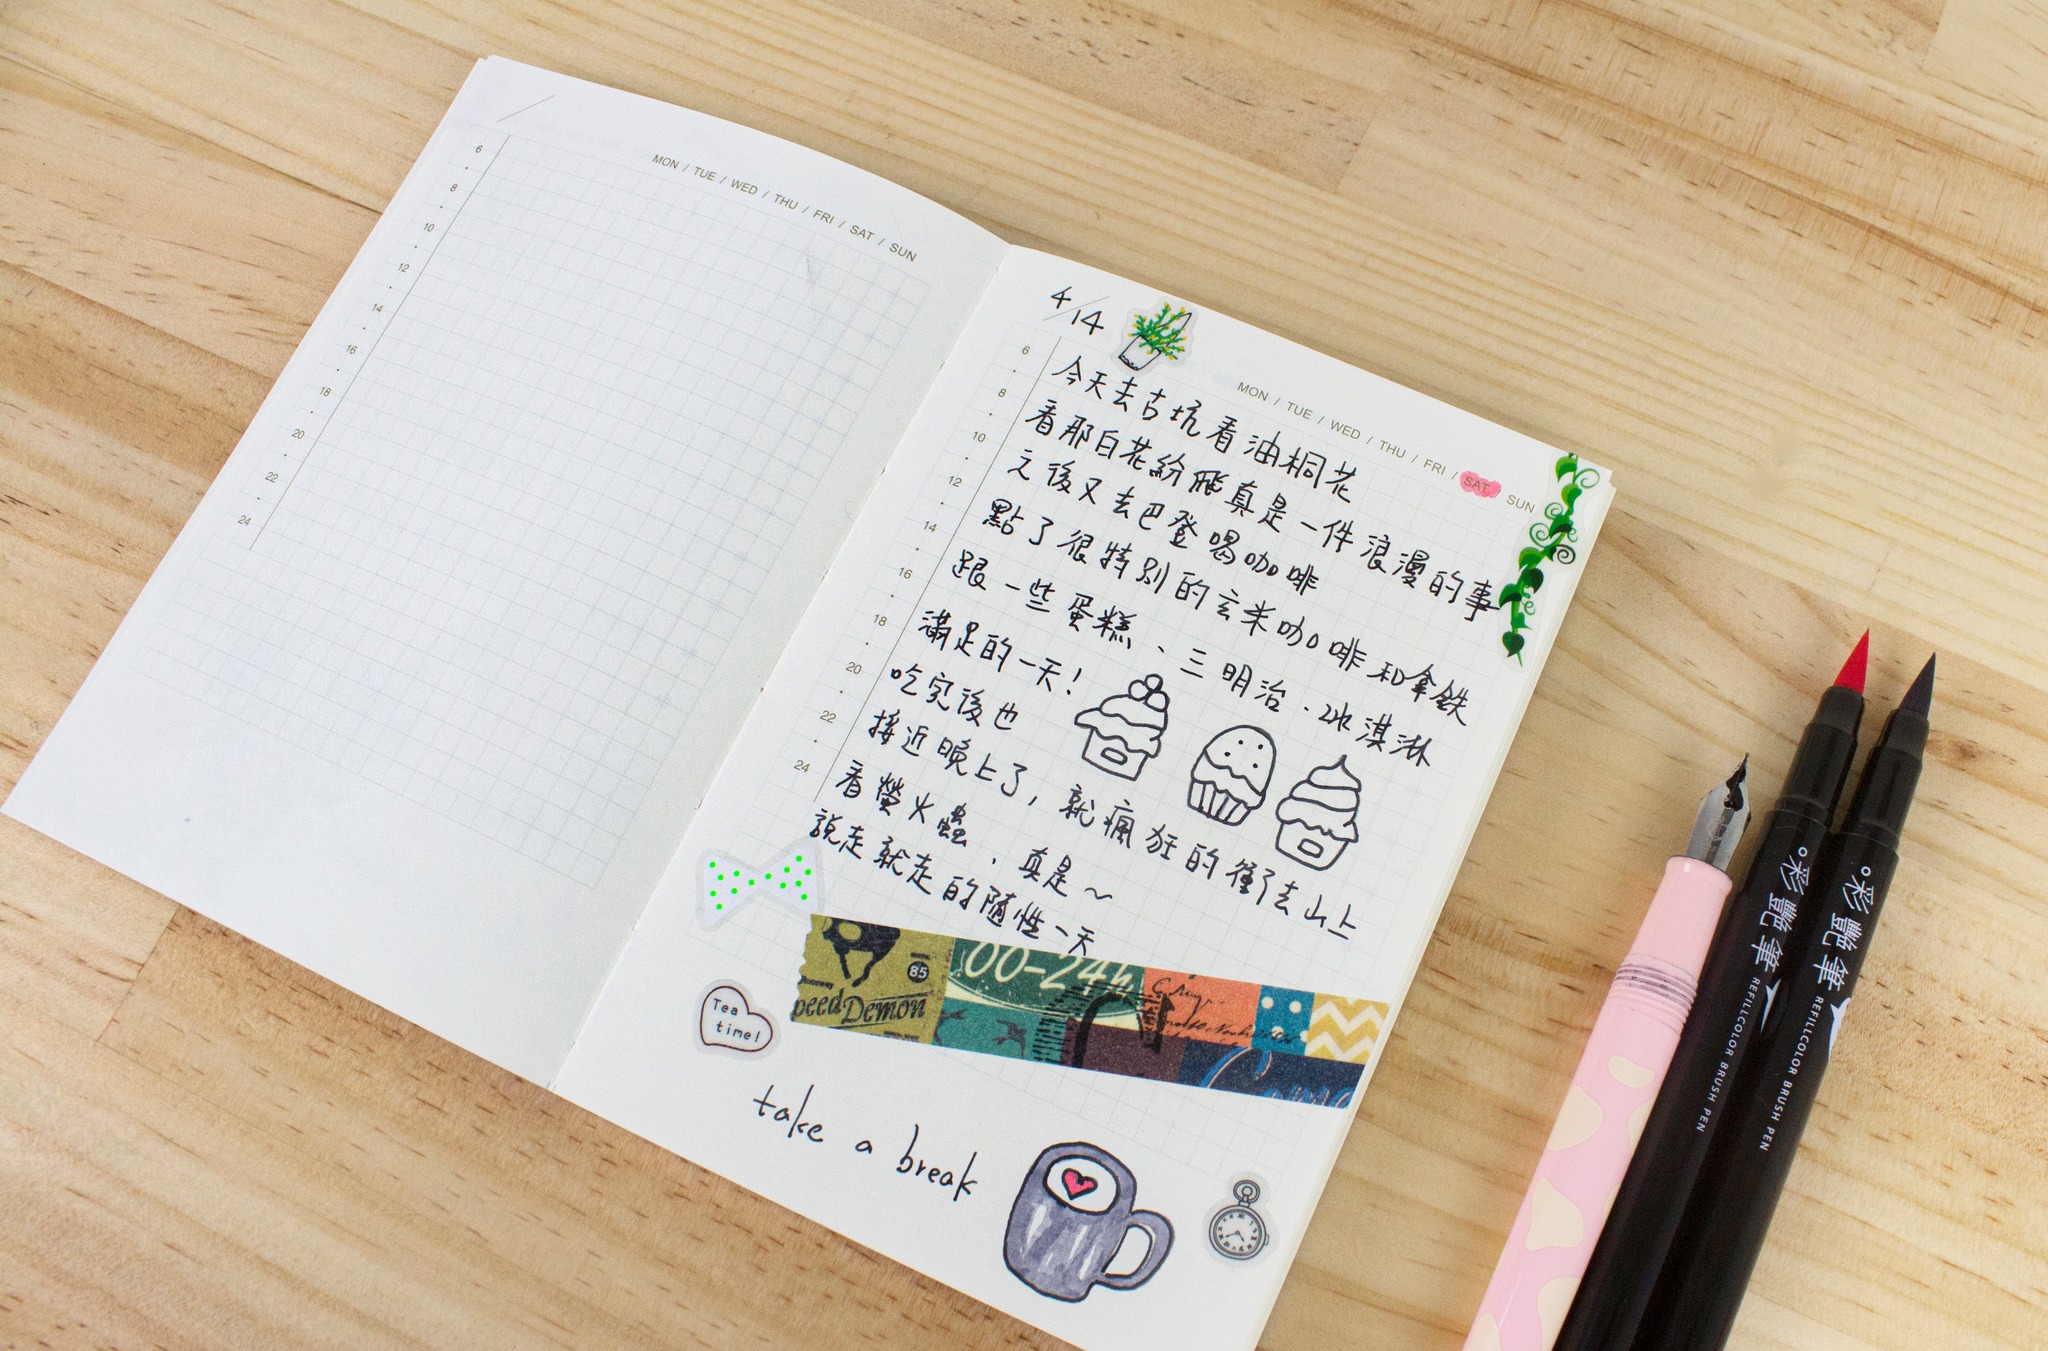 MON / TUE / WED / THU / FRI / SAT / SUN
6
8
10
12
14
16
18
20
22
24
4/14
MON / TUE / WED / THU / FRI / SAT / SUN
6
8
10
12
14
16
18
20
22
24
今天去古坑看油桐花
看那白花紛飛真是一件浪漫的事
之後又去巴登喝咖啡
點了很特別的玄米咖啡和拿鐵
跟一些蛋糕、三明治、冰淇淋
滿足的一天!
吃完後也
接近晚上了,就瘋狂的衝去山上
看螢火蟲、真是~
說走就走的隨性一天
85
peed Demon
00-24h
Tea
time!
take a break
彩艷筆 REFILLCOLOR BRUSH PEN
彩艷筆 REFILLCOLOR BRUSH PEN